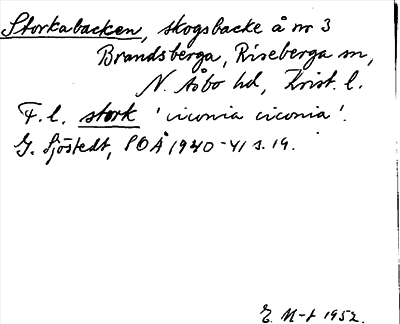 Storkabacken, skogsbacke å nr 3
Brandsberga, Riseberga sn,
N. Åsbo hd, Krist. l.
F. l. stork 'ciconia ciconia'.
G. Sjöstedt, SOÅ 1940-41 s. 19.
E. N-t 1952.